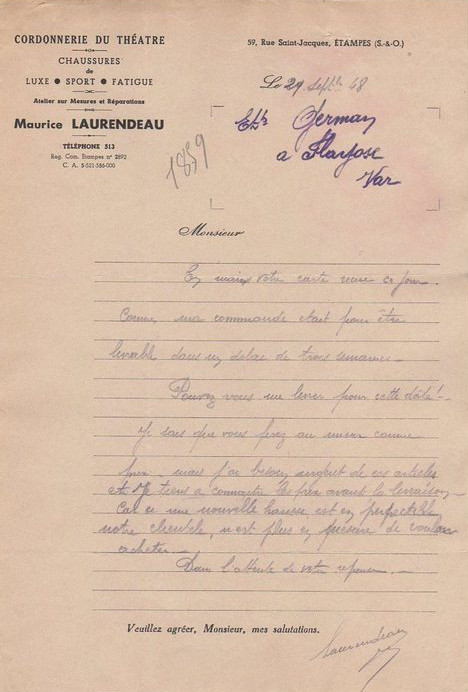 CORDONNERIE DU THÉATRE
CHAUSSURES
de
LUXE ● SPORT ● FATIGUE
Atelier sur Mesures et Réparations
Maurice LAURENDEAU
TÉLÉPHONE 513
Reg. Com. Etampes nº 2892
C. A. 5-521-586-000
59, Rue Saint-Jacques, ÉTAMPES (S.-&-O.)
Le 29 Septbre 48
Ets German
a Flayosc
Var
1859
Monsieur
En mains votre carte reçue ce jour.
Comme ma commande était pour être
livrable dans un délai de trois semaines -
Pouvez vous me livrer pour cette date! -
Je sais que vous ferez au mieux comme
prix. mais j'ai besoin urgent de ces articles
et je tiens à connaitre les prix avant la livraison -
Car si une nouvelle hausse est en perspective,
notre clientèle, n'est plus en mesure de vouloir
acheter -
Dans l'attente de votre réponse. -
Veuillez agréer, Monsieur, mes salutations.
Laurendeau